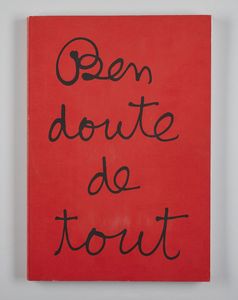 Ben
doute
de
tout